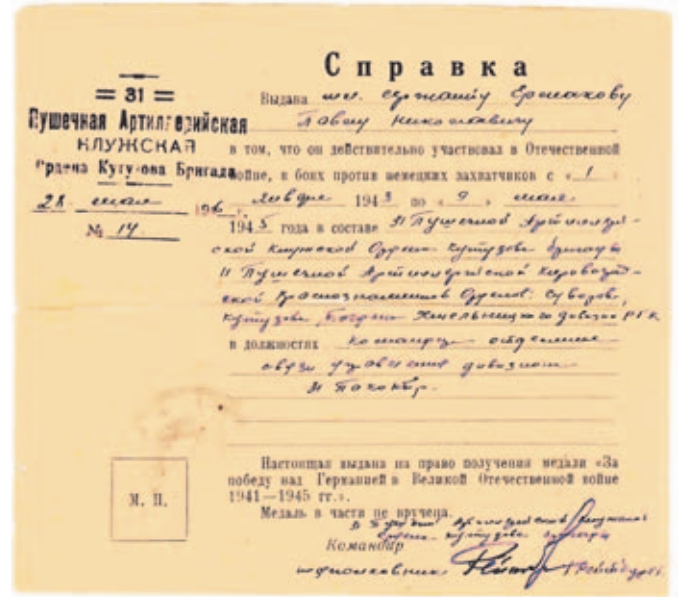 Справка
= 31 =
Пушечная Артиллерийская
КЛУЖСКАЯ
Ордена Кутузова Бригада
28 мая 1946 г.
№ 14
Выдана мл. сержанту Ермакову
Павлу Николаевичу
в том, что он действительно участвовал в Отечественной
войне, в боях против немецких захватчиков с «1»
января 1943 по «9» мая
1945 года в составе 31 Пушечной Артиллерий-
ской Клужской Ордена Кутузова бригады
11 Пушечной Артиллерийской Кировоград-
ской Краснознаменной Орденов: Суворова,
Кутузова, Богдана Хмельницкого дивизии РГК
в должностях командира отделения
связи управления дивизиона
М. П.
Настоящая выдана на право получения медали «За
победу над Германией в Великой Отечественной войне
1941—1945 гг.».
Медаль в части не вручена.
31 Пушечной Артиллерийской Клужской
ордена Кутузова бригады
Командир